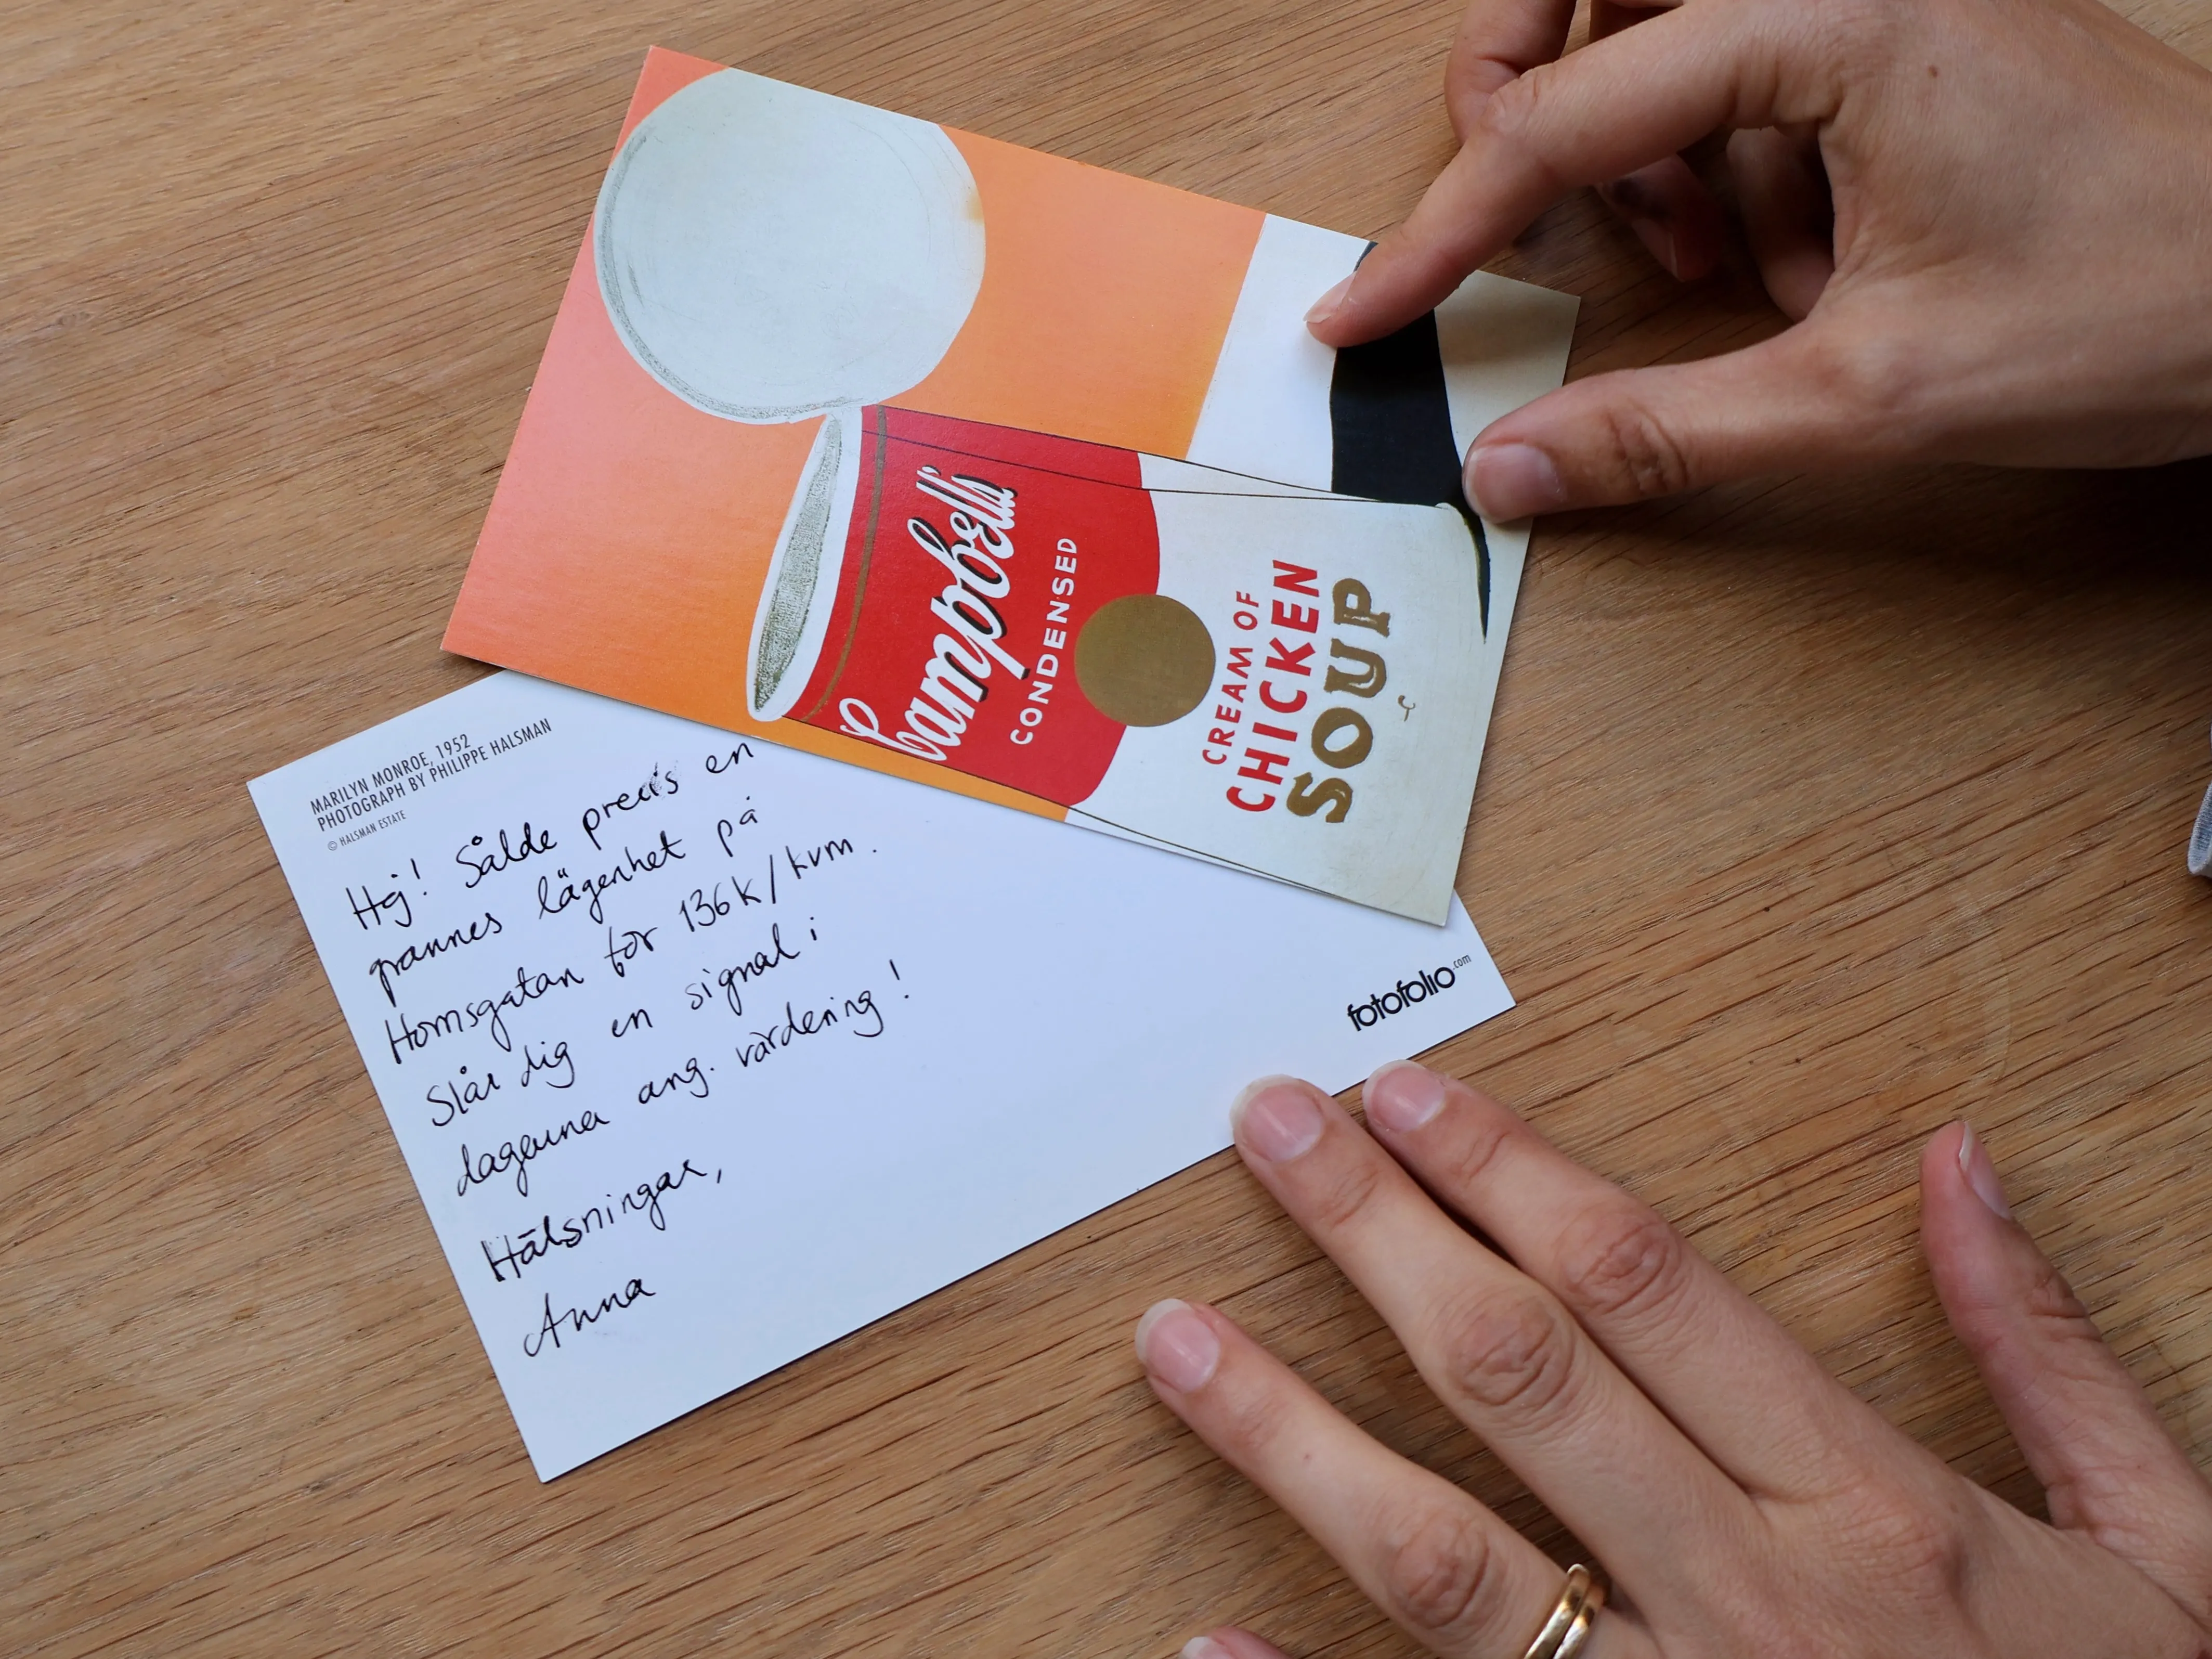 Campbell's
CONDENSED
CREAM OF
CHICKEN
SOUP
MARILYN MONROE, 1952
PHOTOGRAPH BY PHILIPPE HALSMAN
© HALSMAN ESTATE
Hej! Sålde precis en
grannes lägenhet på
Hornsgatan för 136k/kvm.
Slår dig en signal i
dagarna ang. värdering!
Hälsningar,
Anna
fotofolio.com